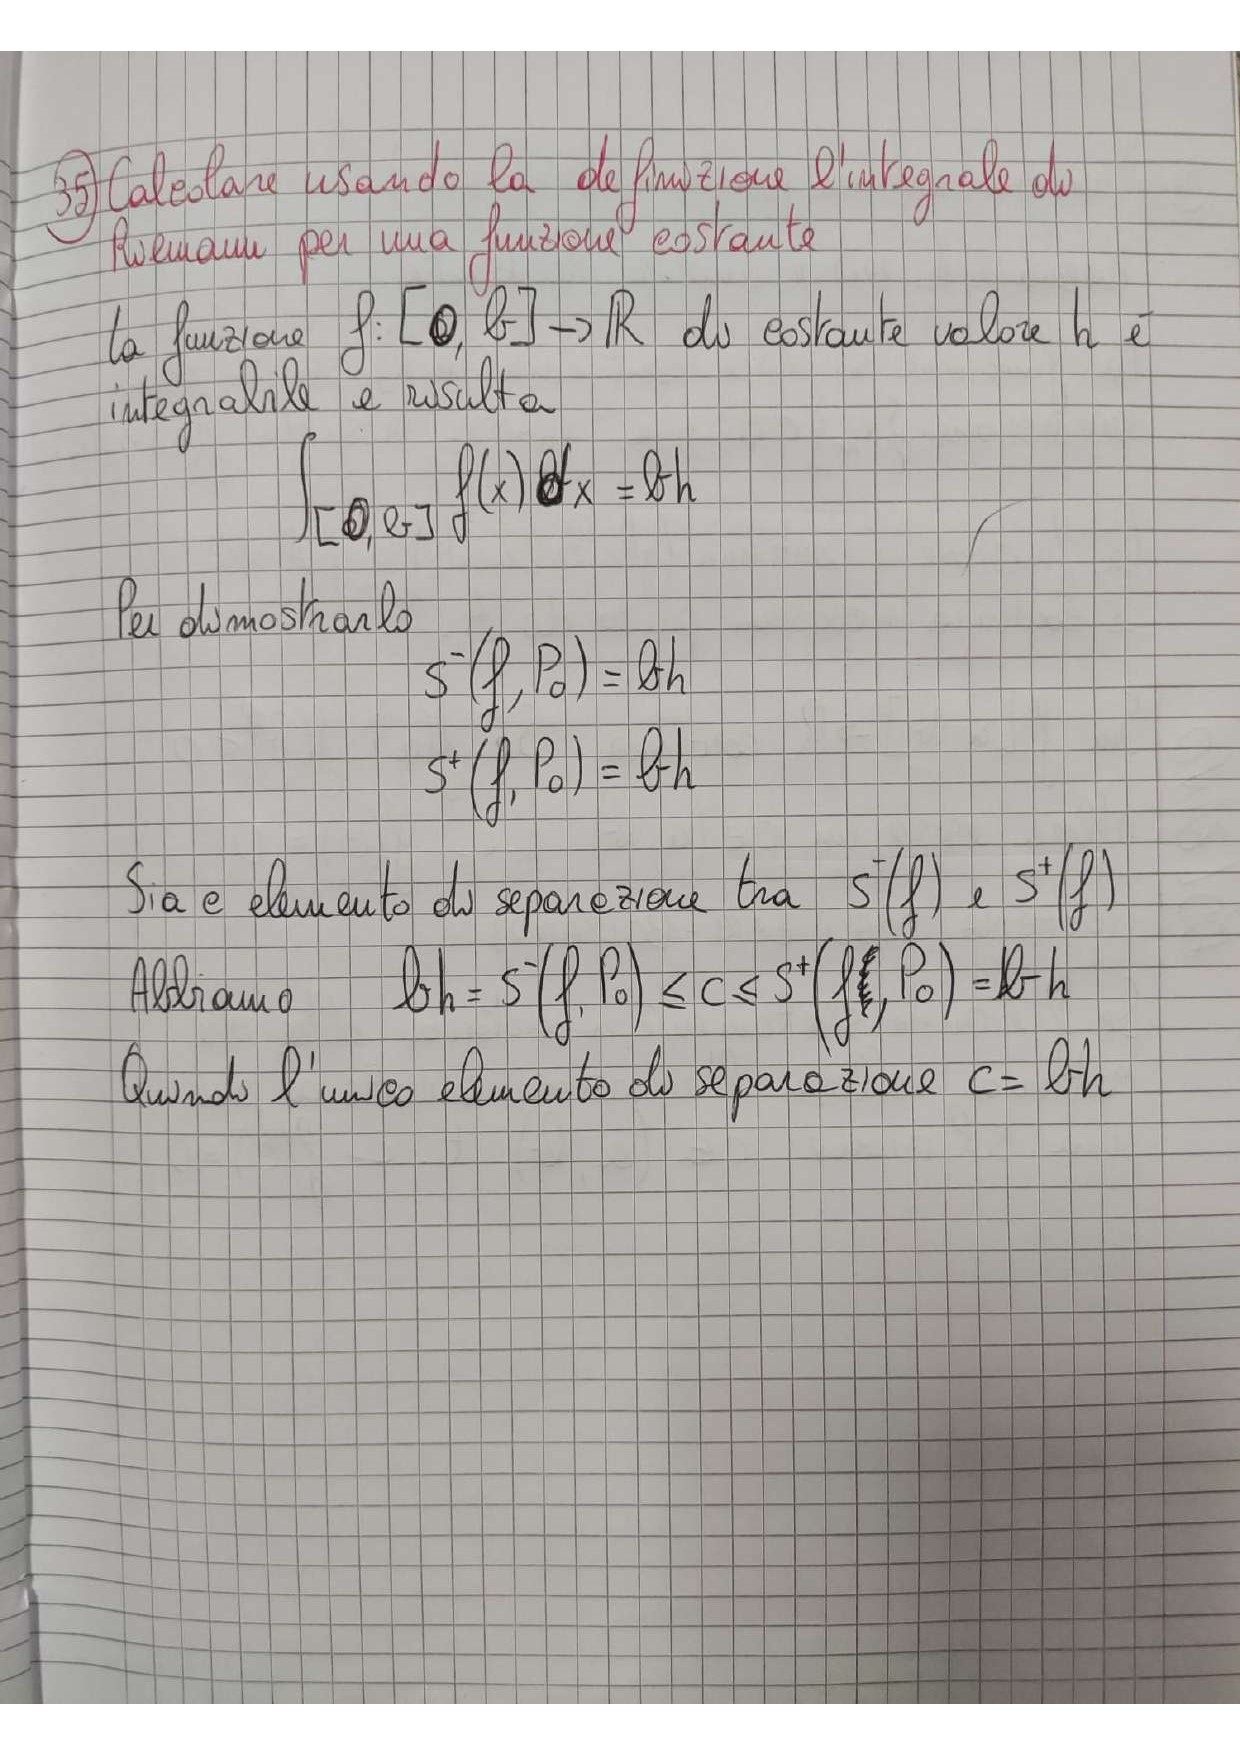 35) Calcolare usando la definizione l'integrale di
Riemann per una funzione costante
la funzione f: [0, b] → ℝ di costante valore h è
integrabile e risulta
∫[0,b] f(x) dx = bh
Per dimostrarlo
S⁻(f, P₀) = bh
S⁺(f, P₀) = bh
Sia c elemento di separazione tra S⁻(f) e S⁺(f)
Abbiamo bh = S⁻(f, P₀) ≤ c ≤ S⁺(f, P₀) = bh
Quindi l'unico elemento di separazione c = bh